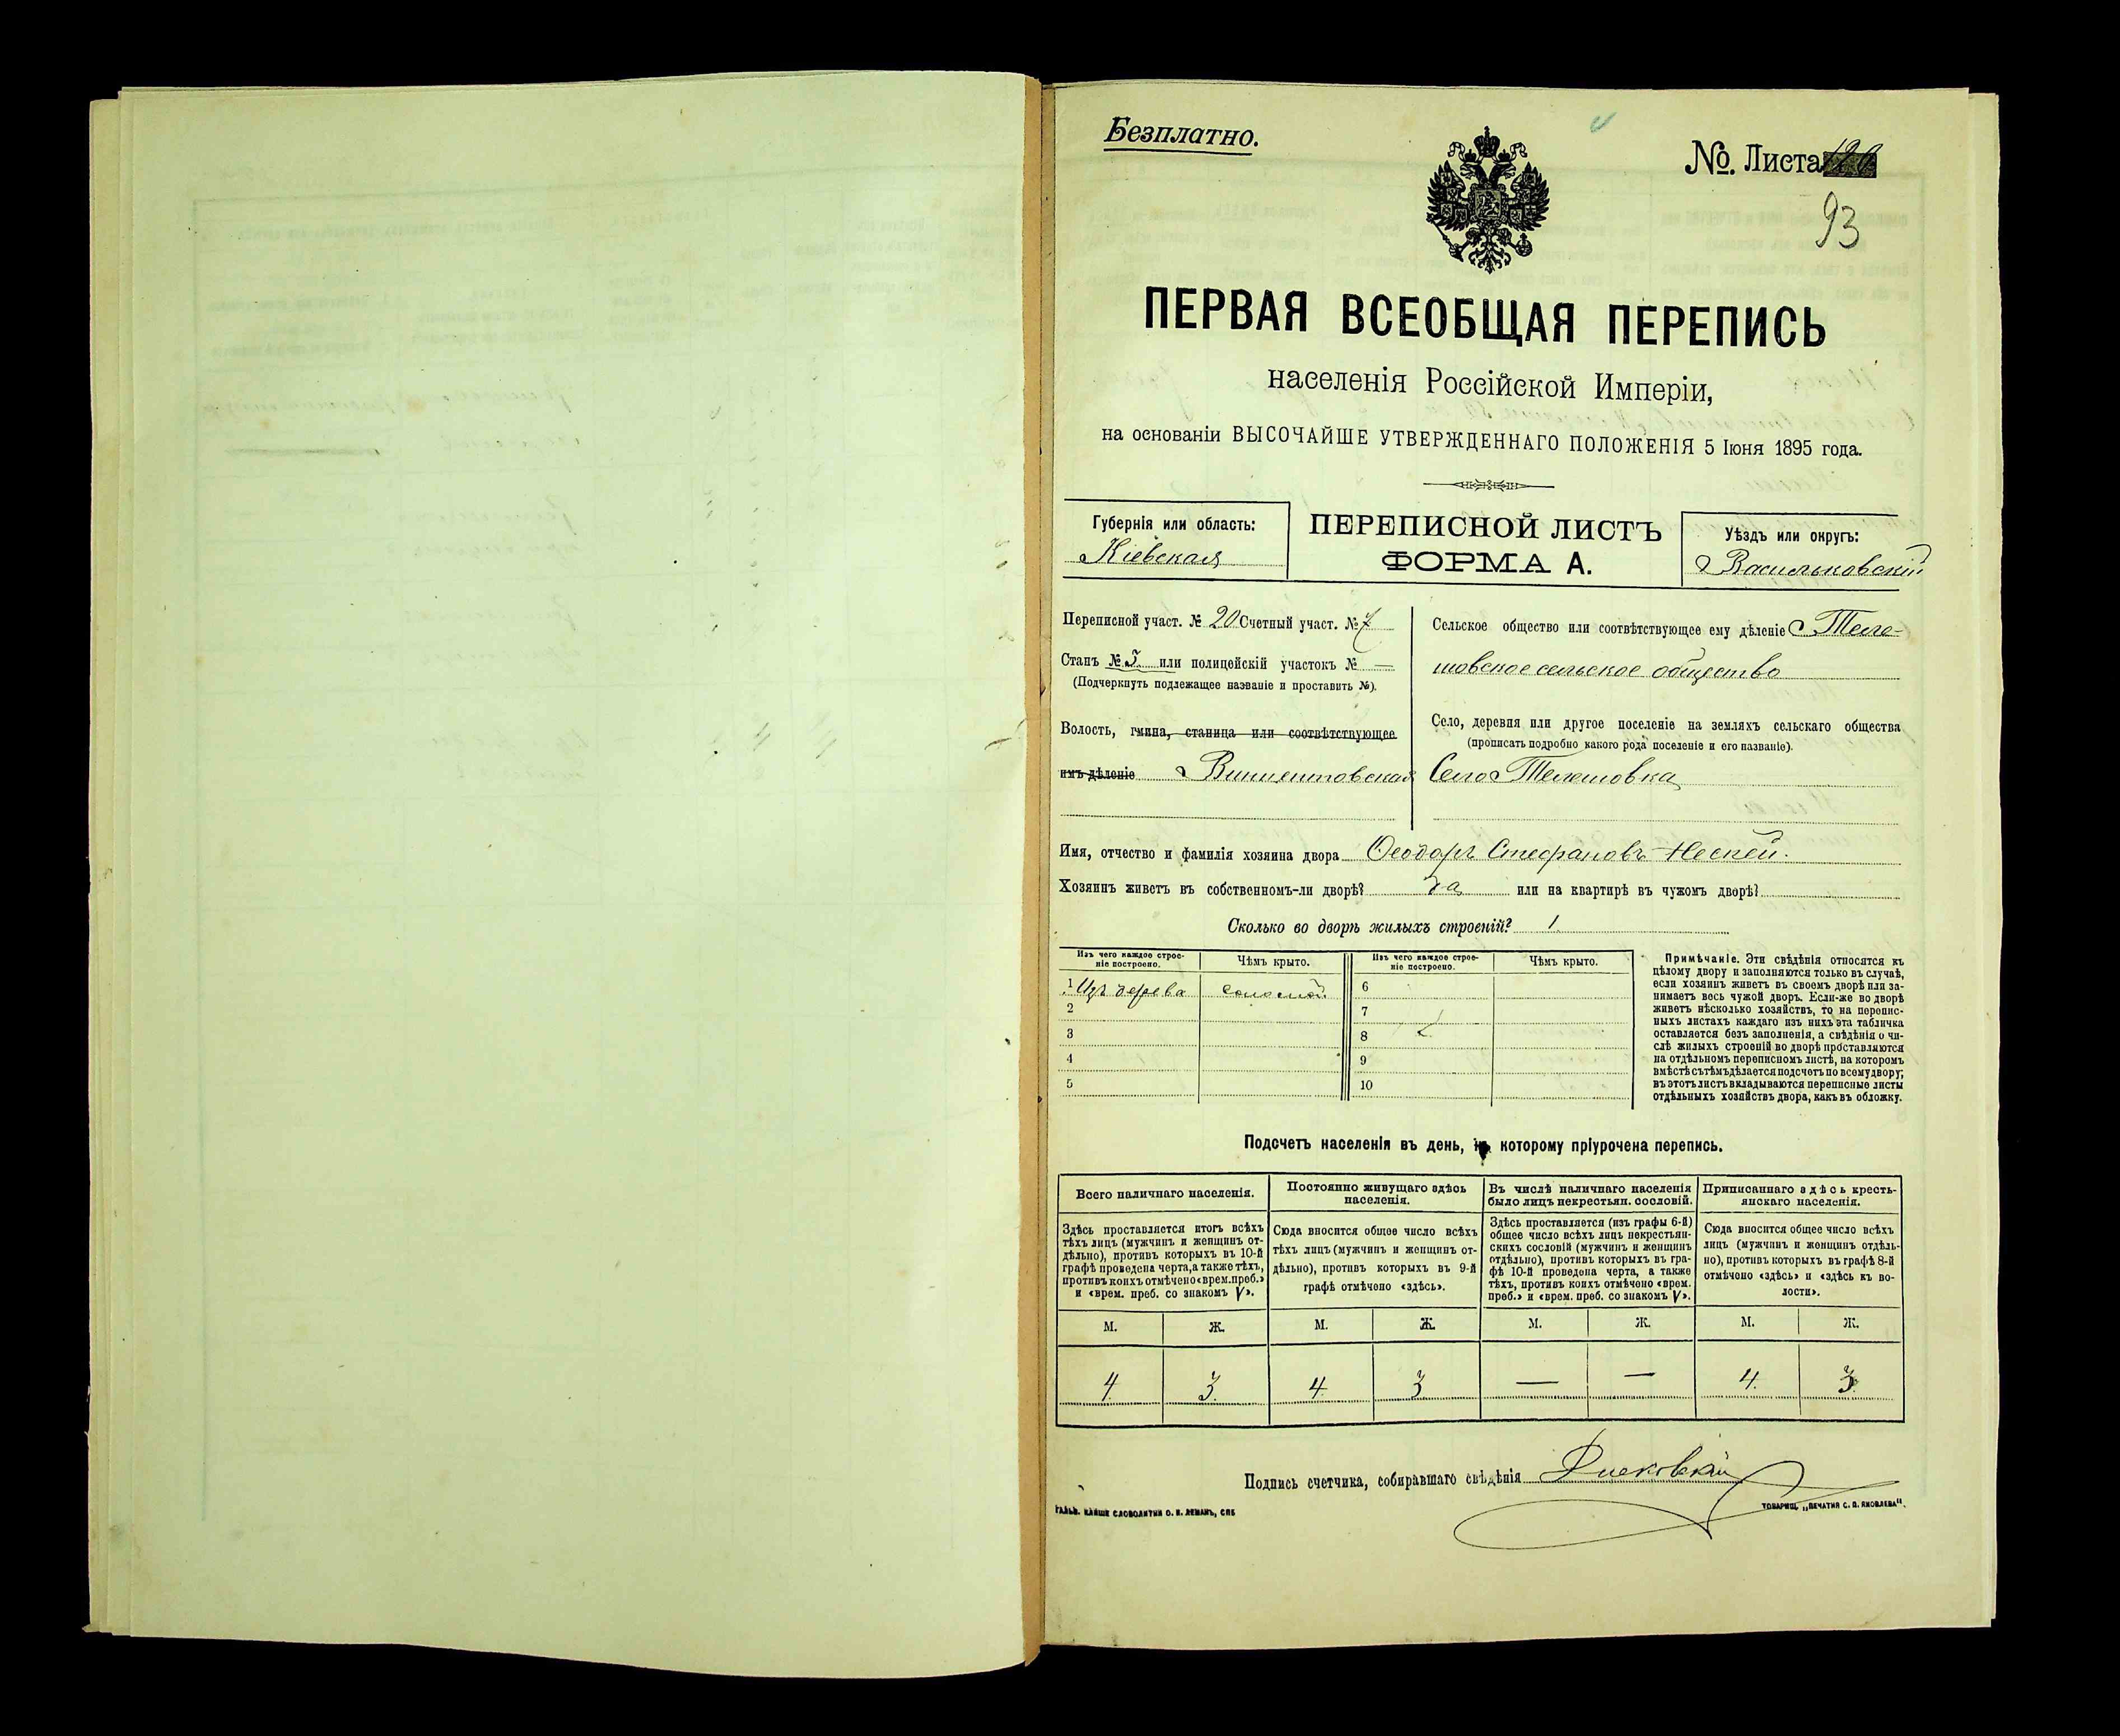 Безплатно.
№. Листа
93
ПЕРВАЯ ВСЕОБЩАЯ ПЕРЕПИСЬ
населенія Россійской Имперіи,
на основаніи ВЫСОЧАЙШЕ УТВЕРЖДЕННАГО ПОЛОЖЕНІЯ 5 Іюня 1895 года.
Губернія или область:
Кіевская
ПЕРЕПИСНОЙ ЛИСТЪ
ФОРМА А.
Уѣздъ или округъ:
Васильковскій
Переписной участ. № 20 Счетный участ. № 7
Станъ № 5 или полицейскій участокъ № —
(Подчеркнуть подлежащее названіе и проставить №).
Волость, гмина, станица или соотвѣтствующее
имъ дѣленіе Винцентовская
Сельское общество или соотвѣтствующее ему дѣленіе Теле-
шовское сельское общество
Село, деревня или другое поселеніе на земляхъ сельскаго общества
(прописать подробно какого рода поселеніе и его названіе).
Село Телешовка
Имя, отчество и фамилія хозяина двора Ѳеодоръ Стефановъ
Хозяинъ живетъ въ собственномъ-ли дворѣ? да или на квартирѣ въ чужомъ дворѣ?
Сколько во дворѣ жилыхъ строеній? 1.
Изъ чего каждое строе-
ніе построено.
Чѣмъ крыто.
Изъ чего каждое строе-
ніе построено.
Чѣмъ крыто.
1 Изъ дерева соломой 6
2 7
3 8
4 9
5 10
Примѣчаніе. Эти свѣдѣнія относятся къ
цѣлому двору и заполняются только въ случаѣ,
если хозяинъ живетъ въ своемъ дворѣ или за-
нимаетъ весь чужой дворъ. Если-же во дворѣ
живетъ нѣсколько хозяйствъ, то на перепис-
ныхъ листахъ каждаго изъ нихъ эта табличка
оставляется безъ заполненія, а свѣдѣнія о чи-
слѣ жилыхъ строеній во дворѣ проставляются
на отдѣльномъ переписномъ листѣ, на которомъ
вмѣстѣ съ тѣмъ дѣлается подсчетъ по всему двору;
въ этотъ листъ вкладываются переписные листы
отдѣльныхъ хозяйствъ двора, какъ въ обложку.
Подсчетъ населенія въ день, къ которому пріурочена перепись.
Всего наличнаго населенія.
Здѣсь проставляется итогъ всѣхъ
тѣхъ лицъ (мужчинъ и женщинъ от-
дѣльно), противъ которыхъ въ 10-й
графѣ проведена черта, а также тѣхъ,
противъ коихъ отмѣчено «врем. преб.»
и «врем. преб. со знакомъ V».
Постоянно живущаго здѣсь
населенія.
Сюда вносится общее число всѣхъ
тѣхъ лицъ (мужчинъ и женщинъ от-
дѣльно), противъ которыхъ въ 9-й
графѣ отмѣчено «здѣсь».
Въ числѣ наличнаго населенія
было лицъ некрестьян. сословій.
Здѣсь проставляется (изъ графы 6-й)
общее число всѣхъ лицъ некрестьян-
скихъ сословій (мужчинъ и женщинъ
отдѣльно), противъ которыхъ въ гра-
фѣ 10-й проведена черта, а также
тѣхъ, противъ коихъ отмѣчено «врем.
преб.» и «врем. преб. со знакомъ V».
Приписаннаго здѣсь кресть-
янскаго населенія.
Сюда вносится общее число всѣхъ
лицъ (мужчинъ и женщинъ отдѣль-
но), противъ которыхъ въ графѣ 8-й
отмѣчено «здѣсь» и «здѣсь къ во-
лости».
М. Ж. М. Ж. М. Ж. М. Ж.
4. 3. 4. 3 — — 4. 3.
Подпись счетчика, собиравшаго свѣдѣнія
СЛОВОЛИТНИ О. И. ЛЕМАНЪ, СПБ
ТОВАРИЩ. „ПЕЧАТНЯ С. П. ЯКОВЛЕВА".